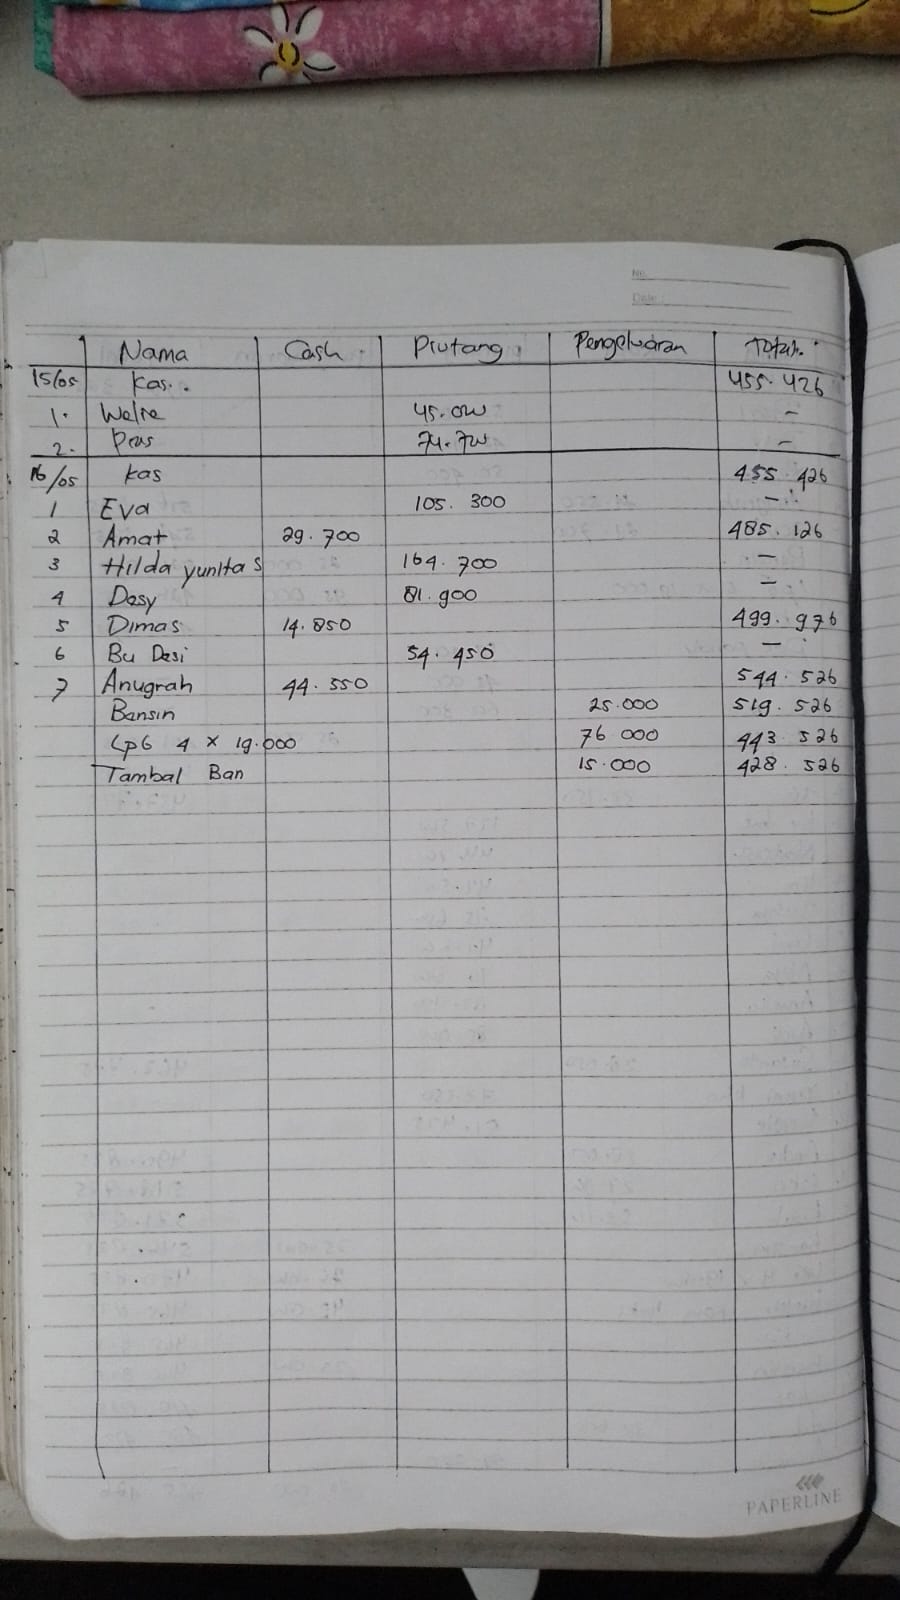 No.
Date:
Nama Cash Piutang Pengeluaran Total.
15/05 kas.. 455.426
1. 45.000 -
2. Pras 74.700 -
16/05 kas 455.426
1 Eva 105.300 -
2 Amat 29.700 485.126
3 Hilda yunitas 164.700 -
4 Desy 81.900 -
5 Dimas 14.850 499.976
6 Bu Desi 54.450 -
7 Anugrah 44.550 544.526
Bensin 25.000 519.526
Lpg 4 x 19.000 76 000 443.526
Tambal Ban 15.000 428.526
PAPERLINE